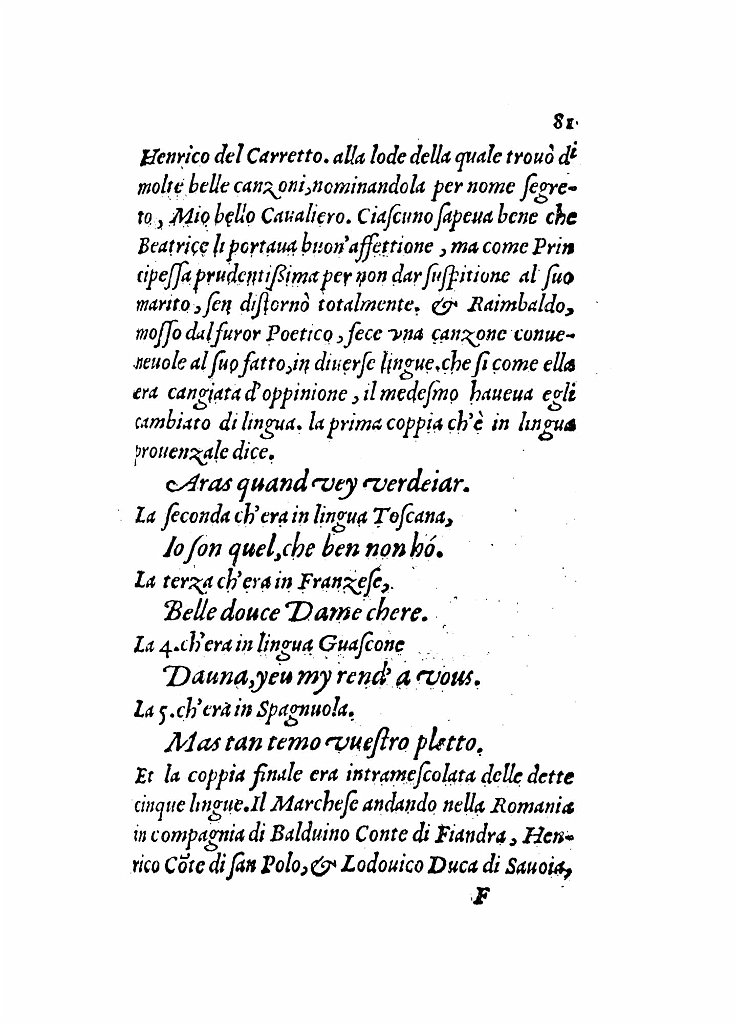 81
Henrico del Carretto. alla lode della quale trouò di
molte belle canzoni, nominandola per nome ſegre-
to, Mio bello Caualiero. Ciaſcuno ſapeua bene che
Beatrice li portaua buon'affettione, ma come Prin
cipeſſa prudentiſſima per non dar ſuſpitione al ſuo
marito, ſen diſtornò totalmente. & Raimbaldo,
moſſo dal furor Poetico, fece vna canzone conue-
neuole al ſuo fatto, in diuerſe lingue. che ſi come ella
era cangiata d'oppinione, il medeſmo haueua egli
cambiato di lingua. la prima coppia ch'è in lingua
prouenzale dice.
Aras quand vey verdeiar.
La ſeconda ch'era in lingua Toſcana,
Io ſon quel, che ben non hó.
La terza ch'era in Franzeſe,
Belle douce Dame chere.
La 4. ch'era in lingua Guaſcone
Dauna, yeu my rend' a vous.
La 5. ch'era in Spagnuola.
Mas tan temo vueſtro pletto.
Et la coppia finale era intrameſcolata delle dette
cinque lingue. Il Marcheſe andando nella Romania
in compagnia di Balduino Conte di Fiandra, Hen-
rico Cōte di ſan Polo, & Lodouico Duca di Sauoia,
F